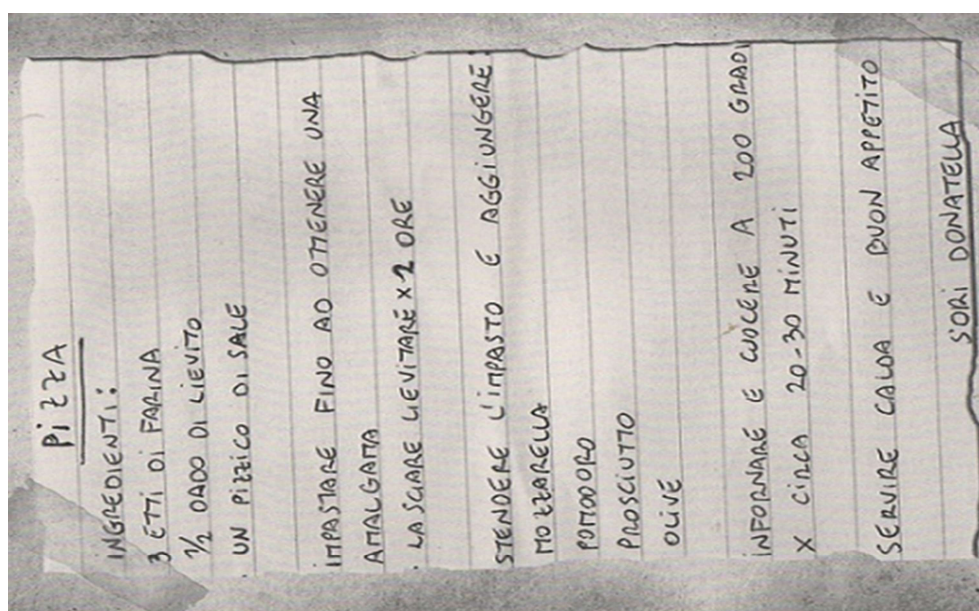 PIZZA
INGREDIENTI:
3 ETTI DI FARINA
1/2 DADO DI LIEVITO
UN PIZZICO DI SALE
IMPASTARE FINO AD OTTENERE UNA
AMALGATA
. LASCIARE LIEVITARE X 2 ORE
STENDERE L'IMPASTO E AGGIUNGERE:
MOZZARELLA
POMODORO
PROSCIUTTO
OLIVE
INFORNARE E CUOCERE A 200 GRADI
X CIRCA 20-30 MINUTI
SERVIRE CALDA E BUON APPETITO
SORI DONATELLA